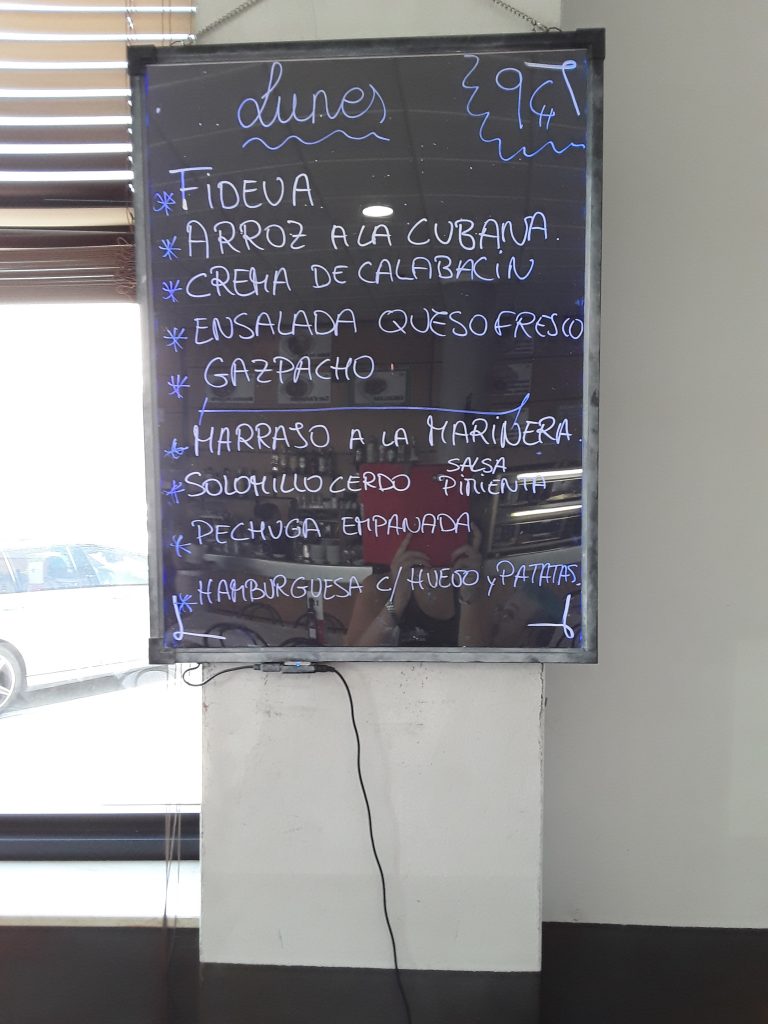 Lunes
9€
* FIDEUA
* ARROZ A LA CUBANA.
* CREMA DE CALABACIN
* ENSALADA QUESO FRESCO
* GAZPACHO
* MARRAJO A LA MARINERA.
* SOLOMILLO CERDO SALSA PIMIENTA
* PECHUGA EMPANADA
* HAMBURGUESA C/ HUEVO y PATATAS.